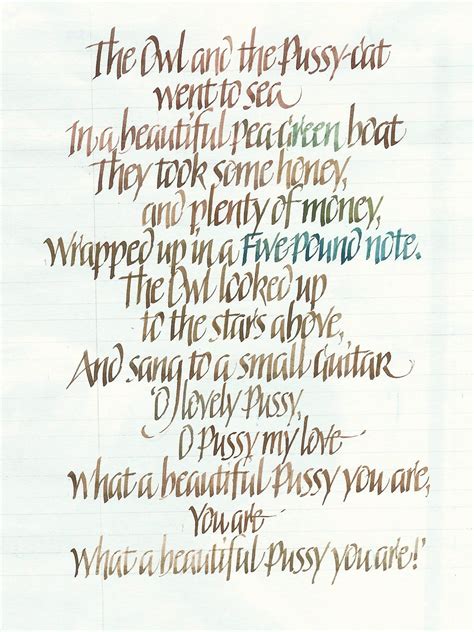 The Owl and the Pussy-cat
went to sea
In a beautiful pea-green boat
They took some honey,
and plenty of money,
Wrapped up in a Five pound note.
The Owl looked up
to the stars above,
And sang to a small guitar
'O lovely Pussy,
O Pussy my love
What a beautiful Pussy you are,
You are
What a beautiful Pussy you are!'